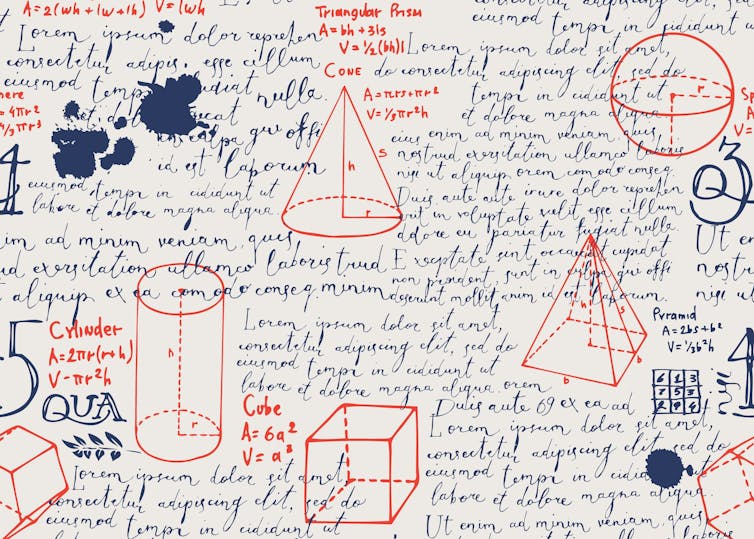 A=2(wh+lw+lh) V=lwh
Triangular Prism
A=bh+3ls
V=½(bh)l
Lorem ipsum dolor reprehen
consectetur adipis. esse cillum
eiusmod
nulla.
qui offi
id est laborum
eiusmod tempi in cididunt ut
labore et dolore magna aliqua.
here
=4πr2
4/3πr3
CONE
A=πrs+πr2
V=⅓πr2h
h
s
r
eiusmod
in cididunt ut
Lorem ipsum dolor sit amet,
do consectetur adipiscing elit, sed do
tempi in cididunt ut
dolore magna aliqua
eius enim ad minim veniam, quis,
nostrud exersitation ullamco laboris
nisi ut aliquip orem comodo conseq.
Duis aute aute irure dolor reprehen
erit in voluptate velit esse cillum
dolore eu pariatur fugiat nulla.
Exceptate sint, occaecat cupidat
non proident, sunt in culpa qui offi
deserunt mollit anim id est laborum.
r
Sp
A
V=
4
Q3
im ad minim veniam, quis,
ud exersitation ullamco laboris trud
t aliquip ex ea comodo conseq minim
Ut en
nostru
nisi ut
5
Cylinder
A=2πr(r+h)
V-πr2h
QUA
h
r
Lorem ipsum dolor sit amet,
consectetur adipiscing elit, sed do
eiusmod tempi in cididunt ut
labore et dolore magna aliqua. orem
h
s
b
b
Pyramid
A=2bs+b2
V=⅓b2h
4
Cube
A=6a2
V=a3
Duis aute 69 ex ea ad
Lorem ipsum dolor sit amet,
consectetur adipiscing elit, sed do
eiusmod tempi in cididunt
labore et dolore magna aliqua.
Ut enim ad minim veniam, quis,
Lorem ipsum dolor sit amet,
consectetur adipiscing elit, sed do
eiusmod tempi in cididunt ut